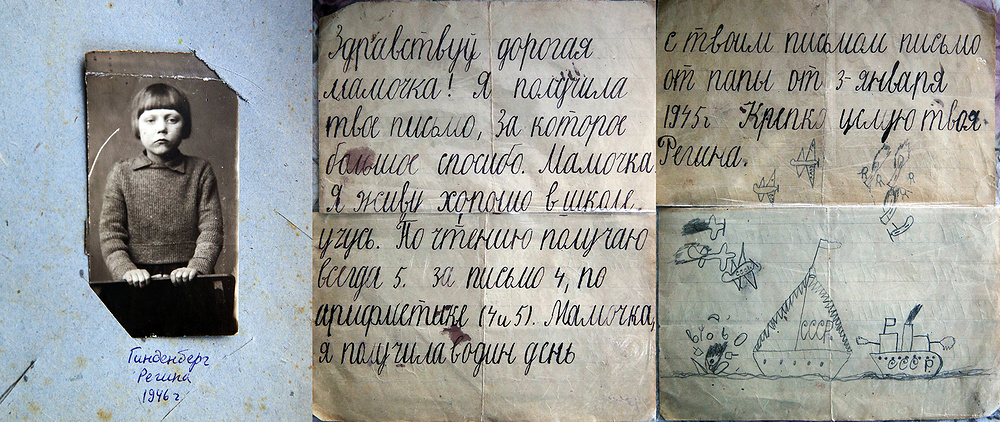 Гинденберг
Регина
1946 г
Здравствуй дорогая
мамочка! Я получила
твое письмо, За которое
большое спосибо. Мамочка
Я живу хорошо в школе
учусь. По чтению получаю
всегда 5. за письмо 4, по
арифметике (4 и 5). Мамочка,
я получила водин день
с твоим письмом письмо
от папы от 3-января
1945г Крепко целую твоя
Регина.
СССР
Р
СССР